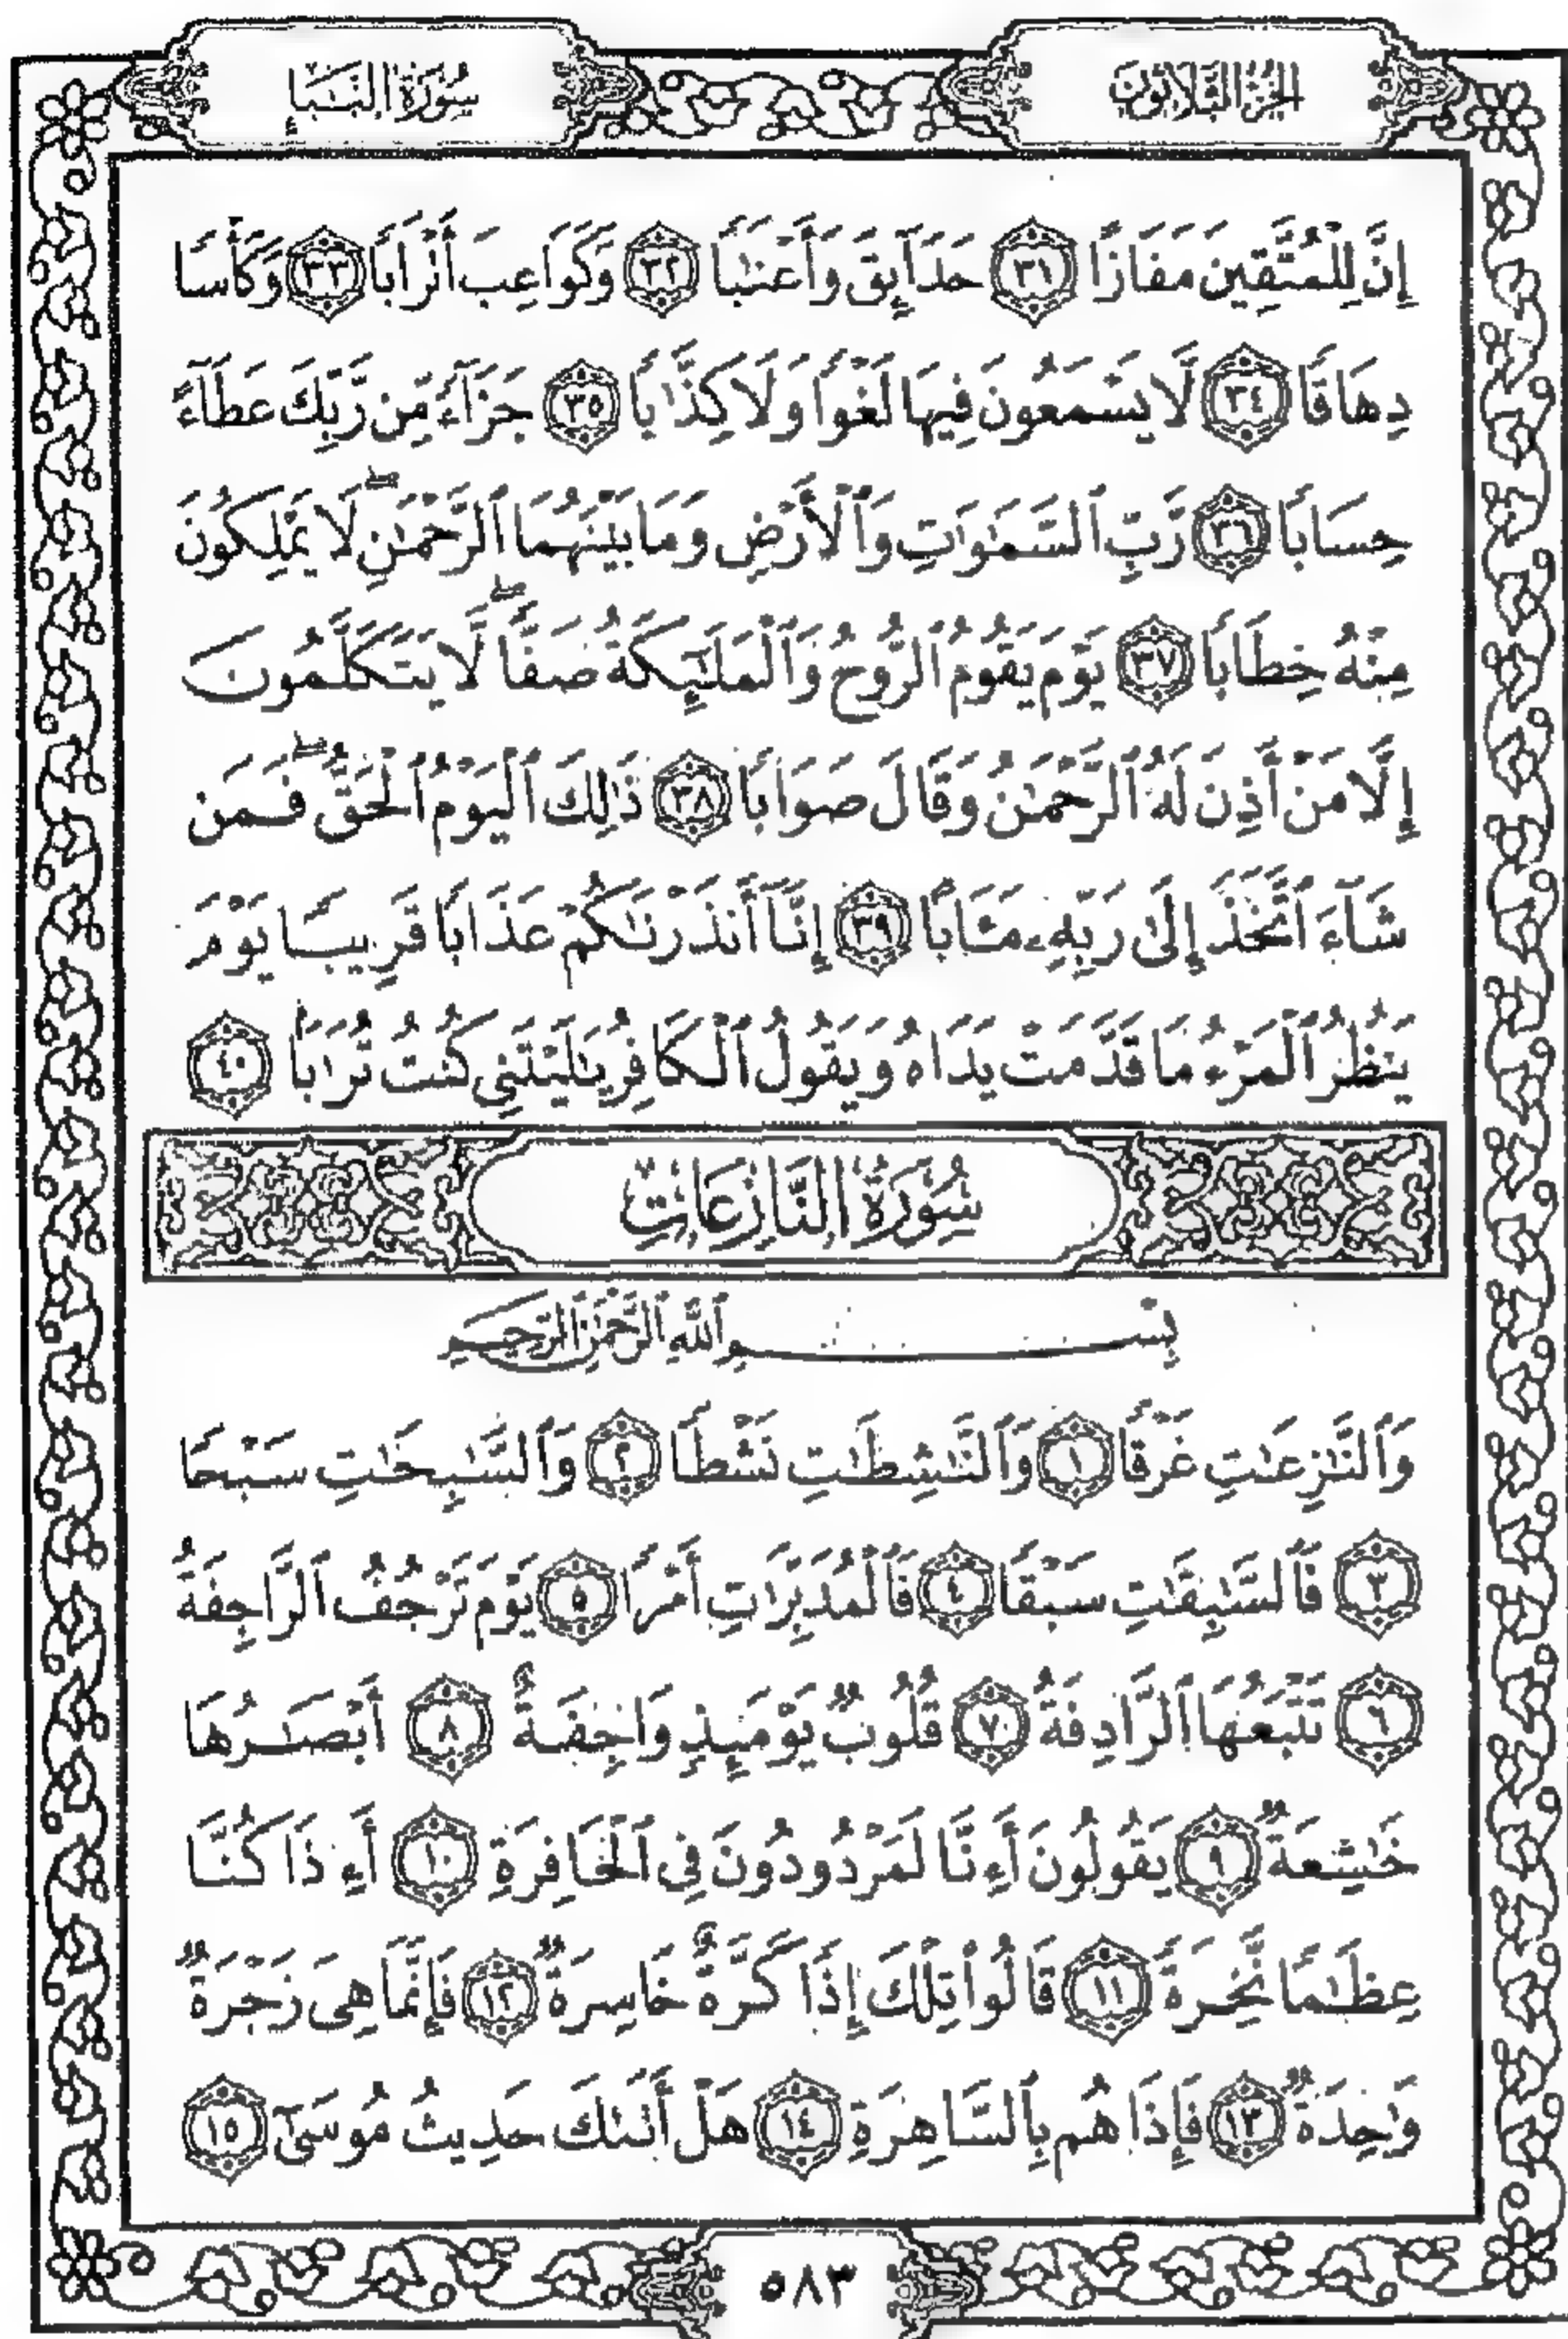 الجزء الثلاثون
سورة النبإ
إِنَّ لِلْمُتَّقِينَ مَفَازًا ٣١ حَدَآئِقَ وَأَعْنَٰبًا ٣٢ وَكَوَاعِبَ أَتْرَابًا ٣٣ وَكَأْسًا
دِهَاقًا ٣٤ لَّا يَسْمَعُونَ فِيهَا لَغْوًا وَلَا كِذَّٰبًا ٣٥ جَزَآءً مِّن رَّبِّكَ عَطَآءً
حِسَابًا ٣٦ رَّبِّ ٱلسَّمَٰوَٰتِ وَٱلْأَرْضِ وَمَا بَيْنَهُمَا ٱلرَّحْمَٰنِ ۖ لَا يَمْلِكُونَ
مِنْهُ خِطَابًا ٣٧ يَوْمَ يَقُومُ ٱلرُّوحُ وَٱلْمَلَٰٓئِكَةُ صَفًّا ۖ لَّا يَتَكَلَّمُونَ
إِلَّا مَنْ أَذِنَ لَهُ ٱلرَّحْمَٰنُ وَقَالَ صَوَابًا ٣٨ ذَٰلِكَ ٱلْيَوْمُ ٱلْحَقُّ ۖ فَمَن
شَآءَ ٱتَّخَذَ إِلَىٰ رَبِّهِۦ مَـَٔابًا ٣٩ إِنَّآ أَنذَرْنَٰكُمْ عَذَابًا قَرِيبًا يَوْمَ
يَنظُرُ ٱلْمَرْءُ مَا قَدَّمَتْ يَدَاهُ وَيَقُولُ ٱلْكَافِرُ يَٰلَيْتَنِى كُنتُ تُرَٰبًۢا ٤٠
سُورَةُ النَّازِعَاتِ
بِسْمِ ٱللَّهِ ٱلرَّحْمَٰنِ ٱلرَّحِيمِ
وَٱلنَّٰزِعَٰتِ غَرْقًا ١ وَٱلنَّٰشِطَٰتِ نَشْطًا ٢ وَٱلسَّٰبِحَٰتِ سَبْحًا
٣ فَٱلسَّٰبِقَٰتِ سَبْقًا ٤ فَٱلْمُدَبِّرَٰتِ أَمْرًا ٥ يَوْمَ تَرْجُفُ ٱلرَّاجِفَةُ
٦ تَتْبَعُهَا ٱلرَّادِفَةُ ٧ قُلُوبٌ يَوْمَئِذٍ وَاجِفَةٌ ٨ أَبْصَٰرُهَا
خَٰشِعَةٌ ٩ يَقُولُونَ أَءِنَّا لَمَرْدُودُونَ فِى ٱلْحَافِرَةِ ١٠ أَءِذَا كُنَّا
عِظَٰمًا نَّخِرَةً ١١ قَالُوا۟ تِلْكَ إِذًا كَرَّةٌ خَاسِرَةٌ ١٢ فَإِنَّمَا هِىَ زَجْرَةٌ
وَٰحِدَةٌ ١٣ فَإِذَا هُم بِٱلسَّاهِرَةِ ١٤ هَلْ أَتَىٰكَ حَدِيثُ مُوسَىٰٓ ١٥
٥٨٣